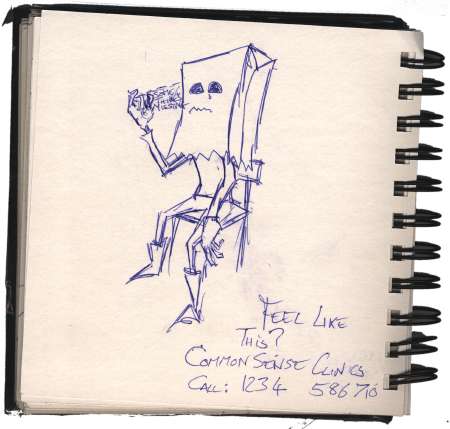 FEEL LIKE
THIS?
COMMON SENSE CLINICS
CALL: 1234 586710